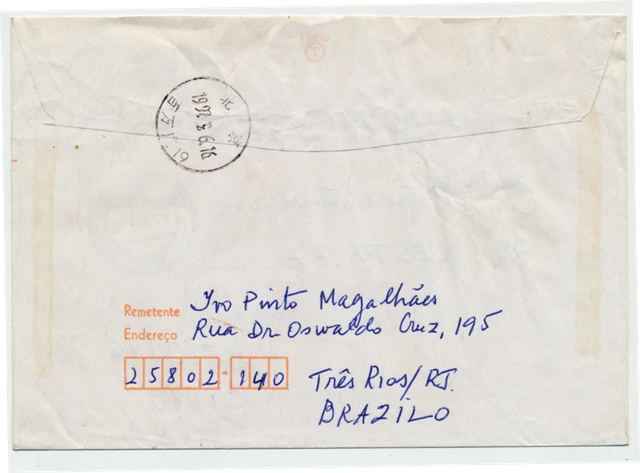 北京
Remetente Ivo Pinto Magalhães
Endereço Rua Dr. Oswaldo Cruz, 195
25802-140 Três Rios/RJ.
BRAZILO